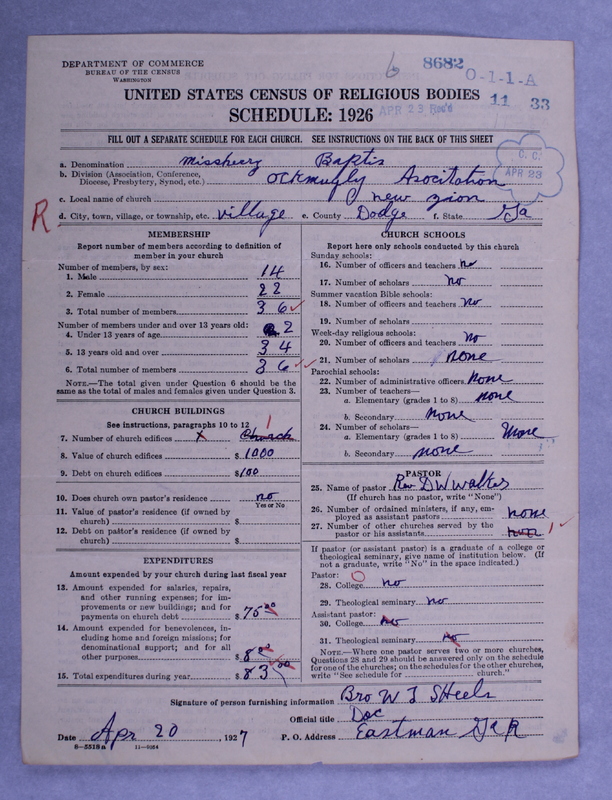 DEPARTMENT OF COMMERCE
BUREAU OF THE CENSUS
WASHINGTON
6 8682 O-1-1-A
UNITED STATES CENSUS OF RELIGIOUS BODIES
SCHEDULE: 1926
APR 23 Rec'd 11 33
FILL OUT A SEPARATE SCHEDULE FOR EACH CHURCH. SEE INSTRUCTIONS ON THE BACK OF THIS SHEET
C. C.
APR 23
a. Denomination Misshearz Baptis
b. Division (Association, Conference, Diocese, Presbytery, Synod, etc.) Ockmugly Asocitation
c. Local name of church new zion
R
d. City, town, village, or township, etc. village e. County Dodge f. State Ga
MEMBERSHIP
Report number of members according to definition of
member in your church
Number of members, by sex:
1. Male 14
2. Female 22
3. Total number of members 36
Number of members under and over 13 years old:
4. Under 13 years of age 2
5. 13 years old and over 34
6. Total number of members 36
NOTE.—The total given under Question 6 should be the
same as the total of males and females given under Question 3.
CHURCH BUILDINGS
See instructions, paragraphs 10 to 12
7. Number of church edifices x Church 1
8. Value of church edifices $1000
9. Debt on church edifices $100
10. Does church own pastor's residence no
Yes or No
11. Value of pastor's residence (if owned by
church) $
12. Debt on pastor's residence (if owned by
church) $
EXPENDITURES
Amount expended by your church during last fiscal year
13. Amount expended for salaries, repairs,
and other running expenses; for im-
provements or new buildings; and for
payments on church debt $75 00
14. Amount expended for benevolences, in-
cluding home and foreign missions; for
denominational support; and for all
other purposes $8 00
15. Total expenditures during year $83 00
CHURCH SCHOOLS
Report here only schools conducted by this church
Sunday schools:
16. Number of officers and teachers no
17. Number of scholars no
Summer vacation Bible schools:
18. Number of officers and teachers no
19. Number of scholars
Week-day religious schools:
20. Number of officers and teachers no
21. Number of scholars none
Parochial schools:
22. Number of administrative officers none
23. Number of teachers—
a. Elementary (grades 1 to 8) none
b. Secondary none
24. Number of scholars—
a. Elementary (grades 1 to 8) none
b. Secondary none
PASTOR
25. Name of pastor Rev D W Walker
(If church has no pastor, write "None")
26. Number of ordained ministers, if any, em-
ployed as assistant pastors none
27. Number of other churches served by the
pastor or his assistants 1
If pastor (or assistant pastor) is a graduate of a college or
theological seminary, give name of institution below. (If
not a graduate, write "No" in the space indicated.)
Pastor: O
28. College no
29. Theological seminary no
Assistant pastor:
30. College no
31. Theological seminary no
NOTE.—Where one pastor serves two or more churches,
Questions 28 and 29 should be answered only on the schedule
for one of the churches; on the schedules for the other churches,
write "See schedule for church."
Signature of person furnishing information Bro W J Sheels
Official title Doc
Date Apr 20, 1927 P. O. Address Eastman Ga R
8-5518a 11-9064